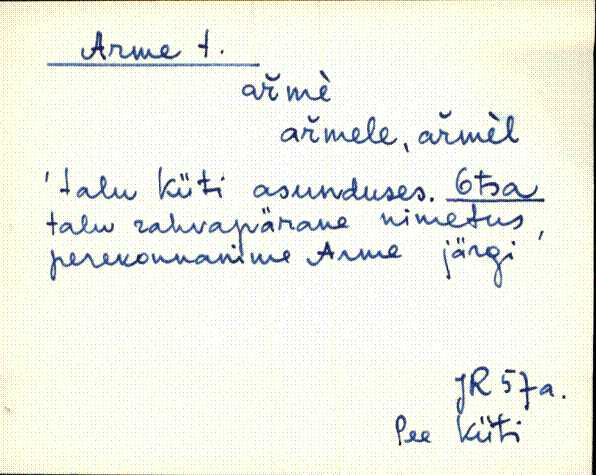 Arme t.
ar̆mè
ar̆mele, ar̆mèl
'talu Küti asunduses. Otsa
talu rahvapärane nimetus
perekonnanime Arme järgi'
JR 57a.
Pee Küti